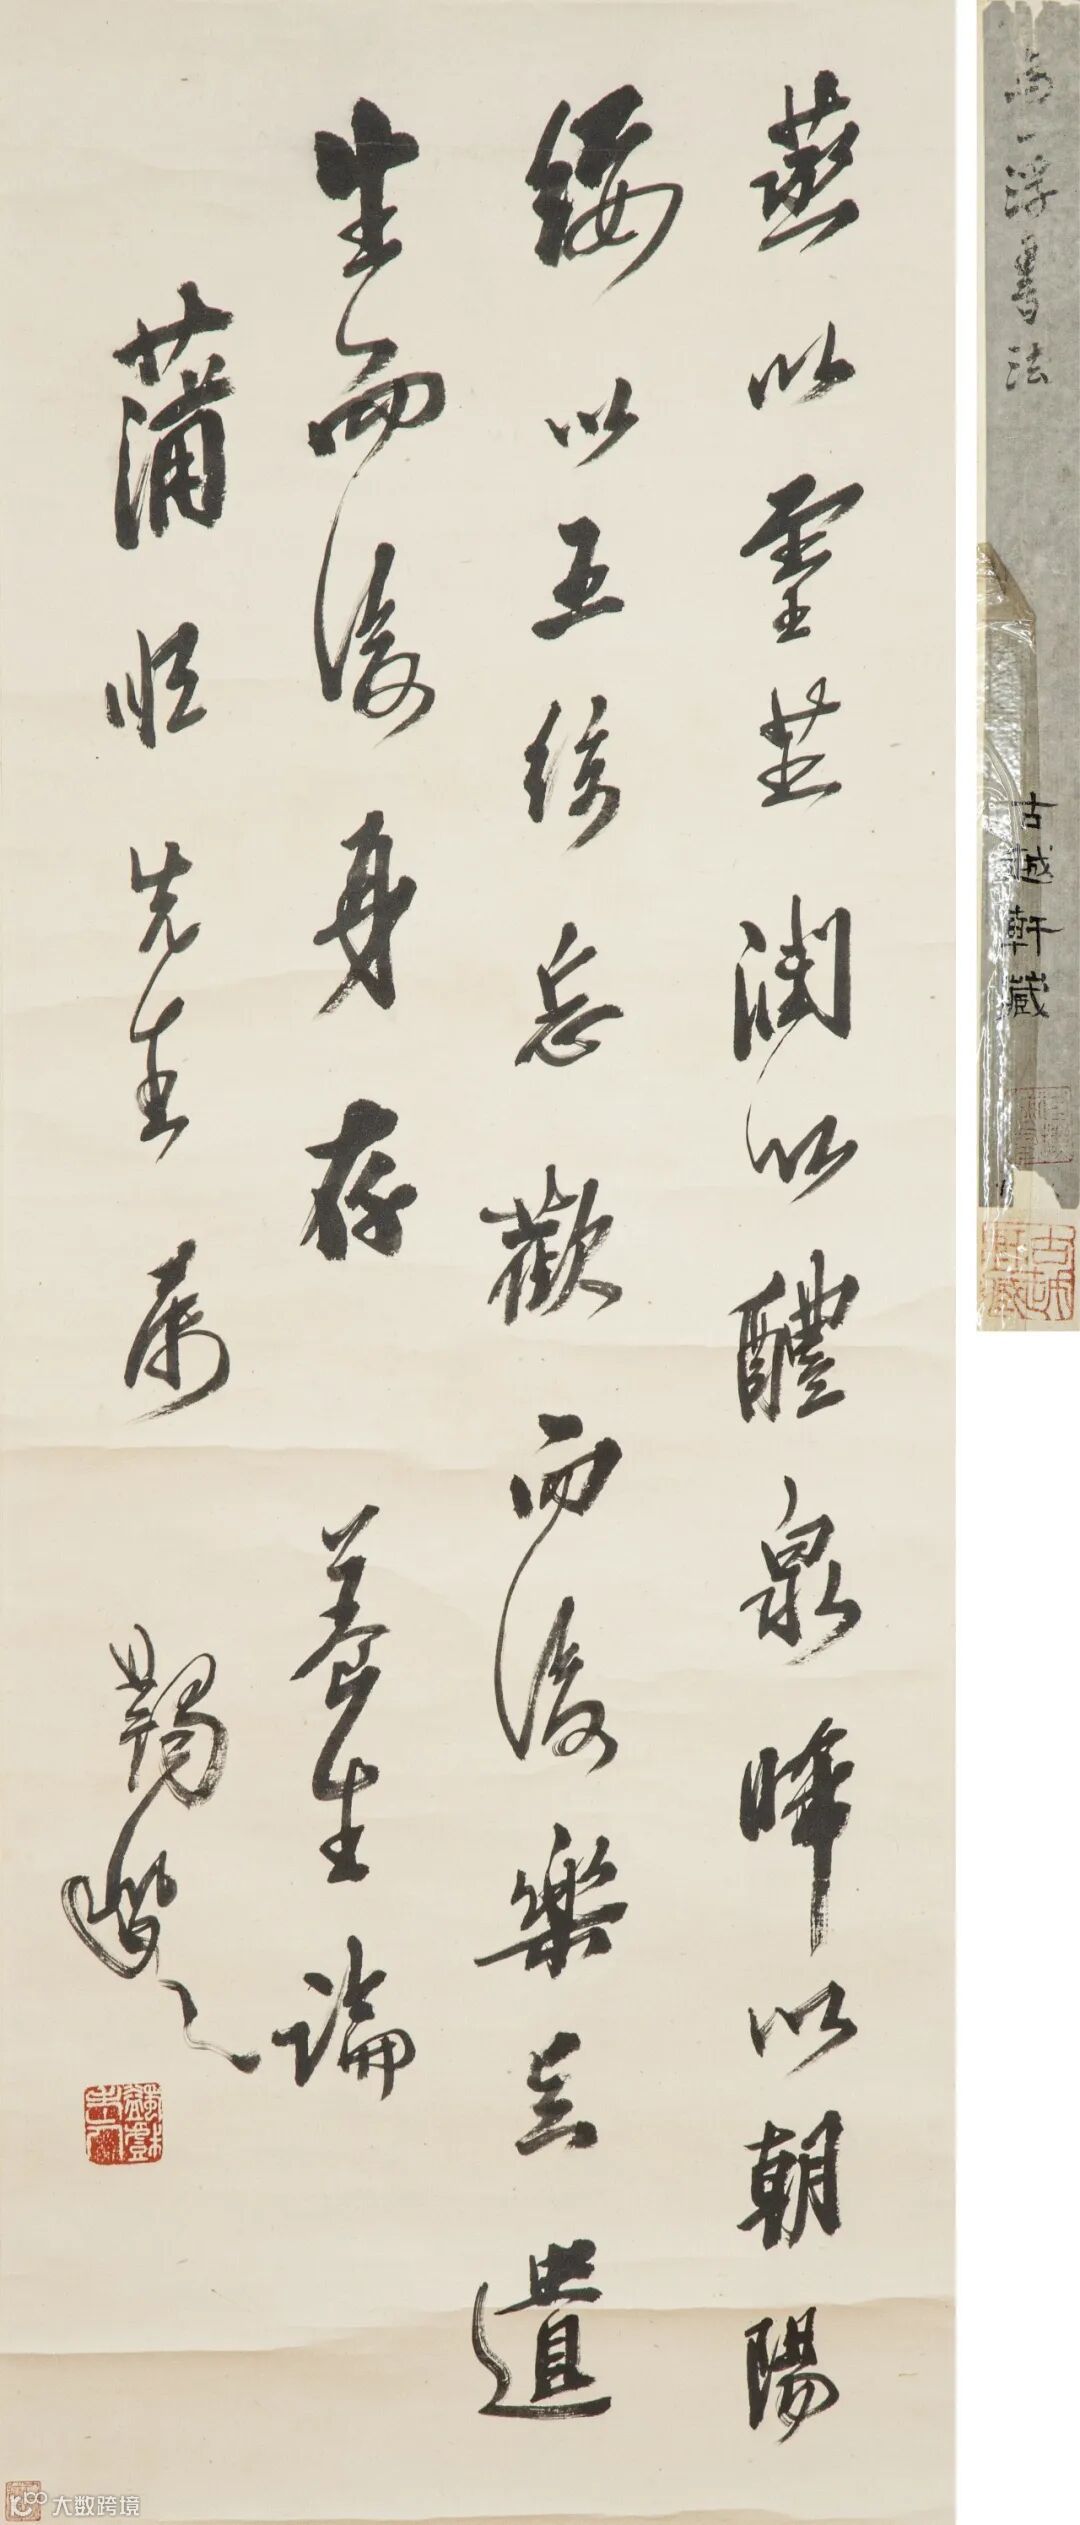 蒸以靈芝潤以醴泉晞以朝陽
綏以五絃忘歡而後樂足遺
生而後身存 養生論
蒲先生属 蠲叟
蠲戲老人
馬一浮書法
古越軒藏
古越軒藏
大数跨境